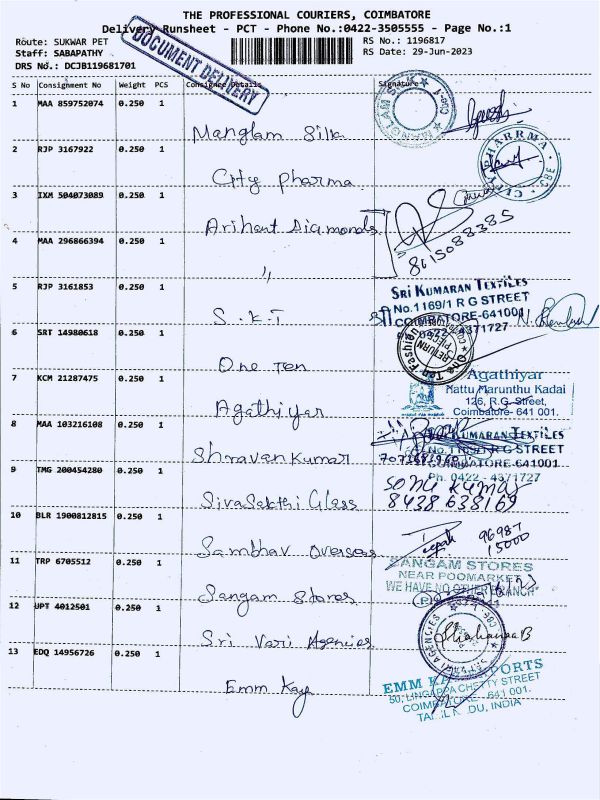 THE PROFESSIONAL COURIERS, COIMBATORE
Delivery Runsheet - PCT - Phone No.:0422-3505555 - Page No.:1
Route: SUKWAR PET
RS No.: 1196817
Staff: SABAPATHY
RS Date: 29-Jun-2023
DRS No.: DCJB119681701
DOCUMENT DELIVERY
S No Consignment No Weight PCS Consignee Details Signature
1 MAA 859752074 0.250 1 Manglam Silk
2 RJP 3167922 0.250 1 City Pharma
3 IXM 504073089 0.250 1 Arihant Diamonds
8015088385
4 MAA 296866394 0.250 1 "
5 RJP 3161853 0.250 1 S.K.T
SRI KUMARAN TEXTILES
No.1169/1 R G STREET
COIMBATORE-641001
0422-4371727
6 SRT 14980618 0.250 1 One Ten
One Ten Fashion
7 KCM 21287475 0.250 1 Agathiyar
Agathiyar
Nattu Marunthu Kadai
126, R.G. Street,
Coimbatore- 641 001.
8 MAA 103216108 0.250 1 Shravan Kumar
KUMARAN TEXTILES
COIMBATORE-641001
Ph. 0422 - 4371727
9 TMG 200454280 0.250 1 SivaSakthi Glass
Sonu Kumar
8438638169
10 BLR 1900812815 0.250 1 Sambhav Overseas
96987
15000
11 TRP 6705512 0.250 1 Sangam Stores
SANGAM STORES
NEAR POOMARKET
WE HAVE NO OTHER BRANCH
12 UPT 4012501 0.250 1 Sri Vari Agencies
13 EDQ 14956726 0.250 1 Emm Kay
EMM KAY EXPORTS
50, LINGAPPA CHETTY STREET
COIMBATORE - 641 001.
TAMIL NADU, INDIA